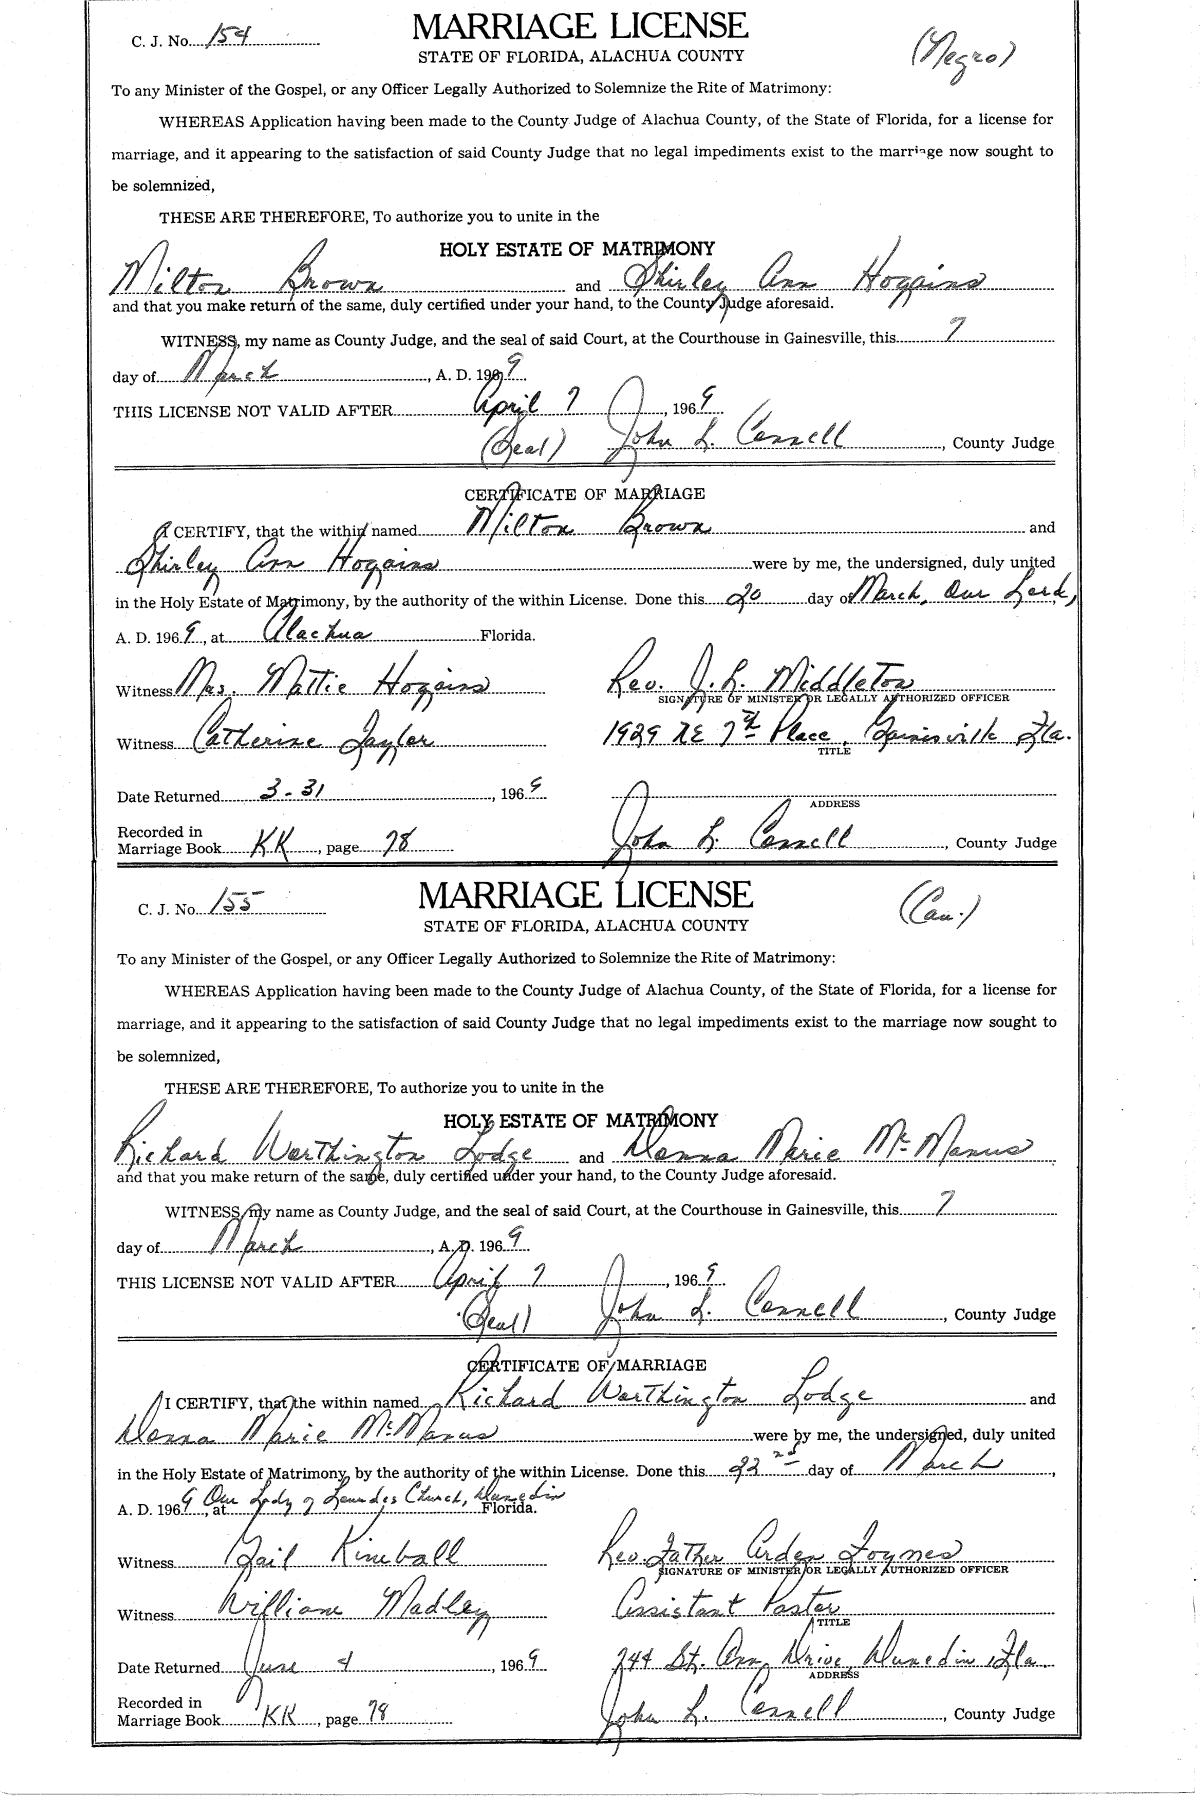 C. J. No. 154
MARRIAGE LICENSE
(Negro)
STATE OF FLORIDA, ALACHUA COUNTY
To any Minister of the Gospel, or any Officer Legally Authorized to Solemnize the Rite of Matrimony:
WHEREAS Application having been made to the County Judge of Alachua County, of the State of Florida, for a license for
marriage, and it appearing to the satisfaction of said County Judge that no legal impediments exist to the marriage now sought to
be solemnized,
THESE ARE THEREFORE, To authorize you to unite in the
HOLY ESTATE OF MATRIMONY
Milton Brown and Shirley Ann Hogains
and that you make return of the same, duly certified under your hand, to the County Judge aforesaid.
WITNESS, my name as County Judge, and the seal of said Court, at the Courthouse in Gainesville, this 7
day of March, A. D. 1969
THIS LICENSE NOT VALID AFTER April 7, 1969
(Seal) John L. Connell, County Judge
CERTIFICATE OF MARRIAGE
I CERTIFY, that the within named Milton Brown and
Shirley Ann Hogains were by me, the undersigned, duly united
in the Holy Estate of Matrimony, by the authority of the within License. Done this 20 day of March, Our Lord,
A. D. 1969, at Alachua Florida.
Witness Mrs. Mattie Hogains Rev. J. L. Middleton
SIGNATURE OF MINISTER OR LEGALLY AUTHORIZED OFFICER
Witness Catherine Taylor 1929 NE 7th Place, Gainisville Fla.
TITLE
Date Returned 3-31, 1969
ADDRESS
Recorded in
Marriage Book KK, page 78 John L. Connell, County Judge
C. J. No. 155
MARRIAGE LICENSE
(Cau.)
STATE OF FLORIDA, ALACHUA COUNTY
To any Minister of the Gospel, or any Officer Legally Authorized to Solemnize the Rite of Matrimony:
WHEREAS Application having been made to the County Judge of Alachua County, of the State of Florida, for a license for
marriage, and it appearing to the satisfaction of said County Judge that no legal impediments exist to the marriage now sought to
be solemnized,
THESE ARE THEREFORE, To authorize you to unite in the
HOLY ESTATE OF MATRIMONY
Richard Worthington Lodge and Donna Marie McManus
and that you make return of the same, duly certified under your hand, to the County Judge aforesaid.
WITNESS, my name as County Judge, and the seal of said Court, at the Courthouse in Gainesville, this 7
day of March, A. D. 1969
THIS LICENSE NOT VALID AFTER April 7, 1969
(Seal) John L. Connell, County Judge
CERTIFICATE OF MARRIAGE
I CERTIFY, that the within named Richard Worthington Lodge and
Donna Marie McManus were by me, the undersigned, duly united
in the Holy Estate of Matrimony, by the authority of the within License. Done this 22nd day of March,
A. D. 1969, at Our Lady of Lourdes Church, Dunedin Florida.
Witness Gail Kimball Rev. Father Arden Foynes
SIGNATURE OF MINISTER OR LEGALLY AUTHORIZED OFFICER
Witness William Madley Assistant Pastor
TITLE
Date Returned June 4, 1969 744 St. Ann Drive, Dunedin Fla.
ADDRESS
Recorded in
Marriage Book KK, page 78 John L. Connell, County Judge